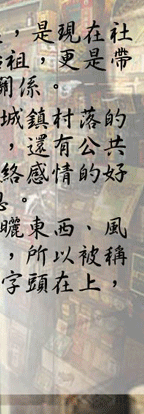 ，是現在社
祖，更是帶
關係。
城鎮村落的
，還有公共
絡感情的好
曬東西、風
，所以被稱
字頭在上，